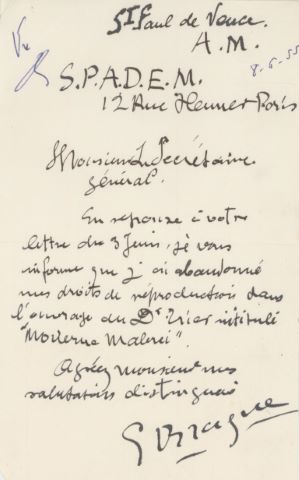 St Paul de Vence
A.M.
Vu
8-6-55
S.P.A.D.E.M.
12 Rue Henner Paris
Monsieur Le Secrétaire
général.
En reponse à votre
lettre du 3 Juin, je vous
informe que j'ai abandonné
mes droits de réproduction dans
l'ouvrage du Dr Trier intitulé
"Moderne Malerei".
Agréez monsieur mes
salutations distingués
G Braque